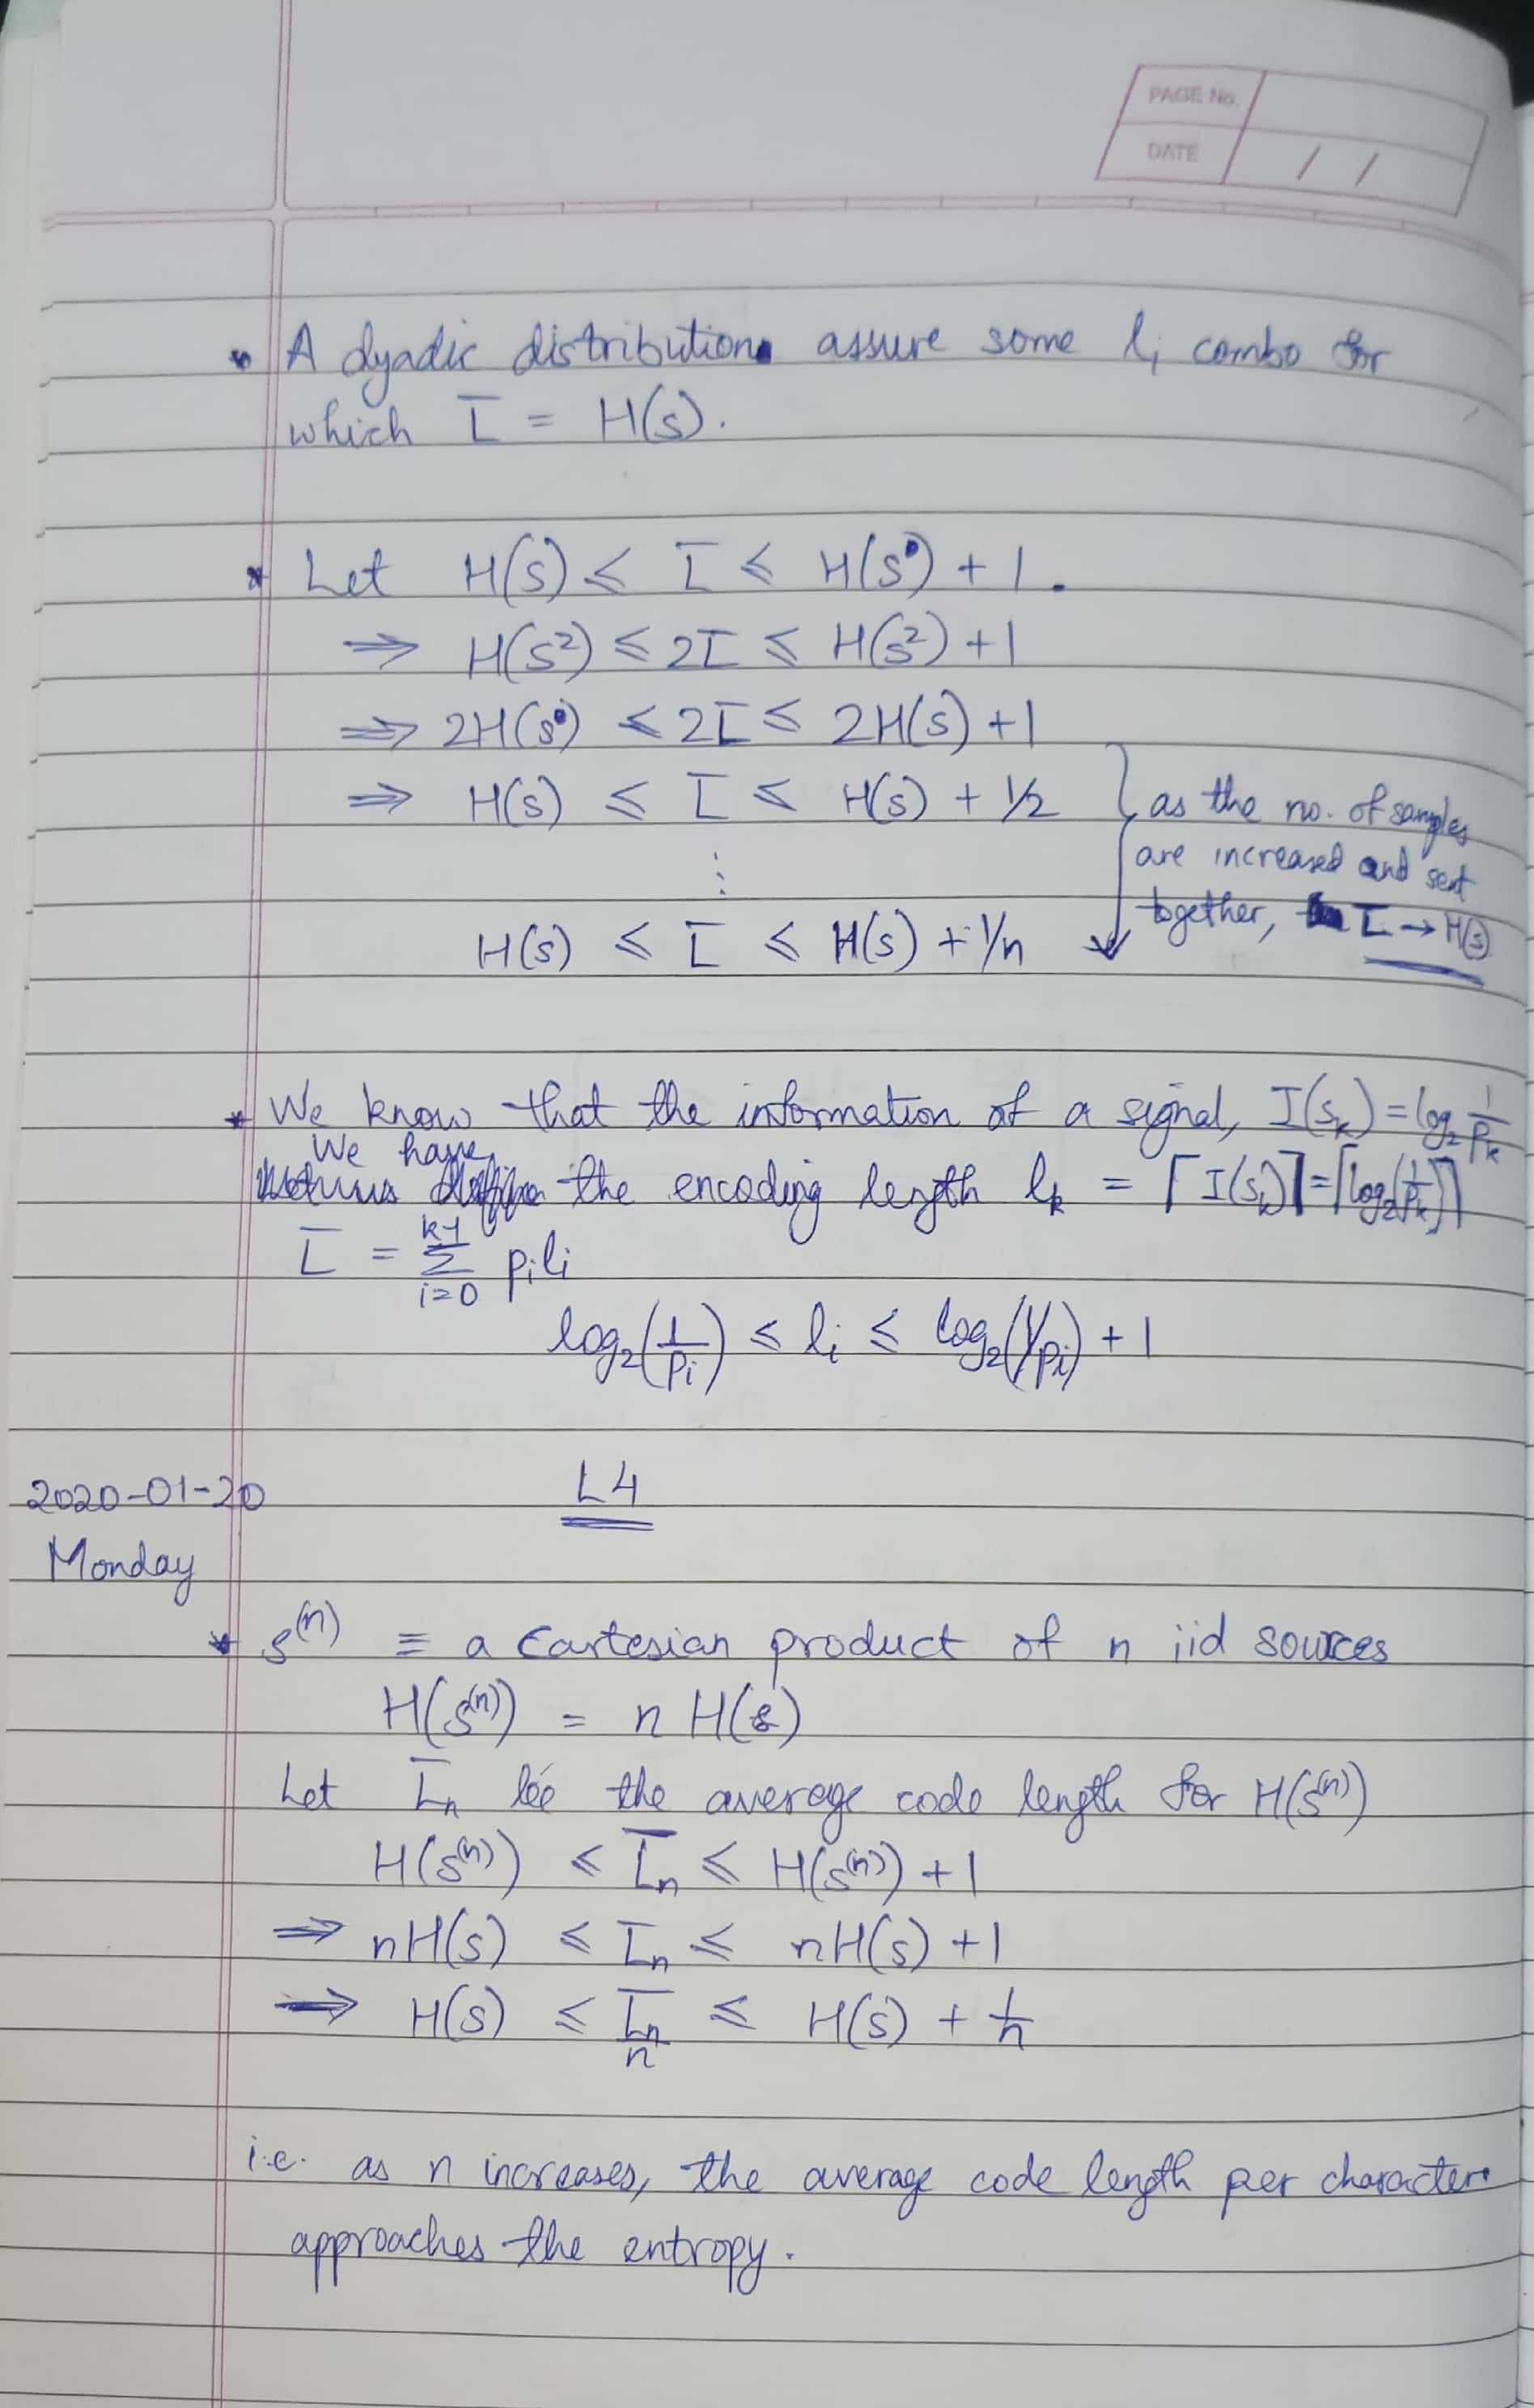 PAGE No.
DATE / /
* A dyadic distribution assure some lᵢ combo for
which L̄ = H(s).
* Let H(S) ≤ L̄ ≤ H(S) + 1.
⇒ H(S²) ≤ 2L̄ ≤ H(S²) + 1
⇒ 2H(S) ≤ 2L̄ ≤ 2H(S) + 1
⇒ H(S) ≤ L̄ ≤ H(S) + 1/2
⋮
H(S) ≤ L̄ ≤ H(S) + 1/n
as the no. of samples
are increased and sent
together, L̄ → H(S)
* We know that the information of a signal, I(sₖ) = log₂ 1/pₖ
We have
the encoding length lₖ = ⌈I(sₖ)⌉ = ⌈log₂(1/pₖ)⌉
L̄ = Σ_{i=0}^{k-1} pᵢlᵢ
log₂(1/pᵢ) ≤ lᵢ ≤ log₂(1/pᵢ) + 1
2020-01-20
Monday
L4
* S⁽ⁿ⁾ ≡ a Cartesian product of n iid sources
H(S⁽ⁿ⁾) = n H(S)
Let L̄ₙ be the average code length for H(S⁽ⁿ⁾)
H(S⁽ⁿ⁾) ≤ L̄ₙ ≤ H(S⁽ⁿ⁾) + 1
⇒ nH(S) ≤ L̄ₙ ≤ nH(S) + 1
⇒ H(S) ≤ L̄ₙ/n ≤ H(S) + 1/n
i.e. as n increases, the average code length per character
approaches the entropy.